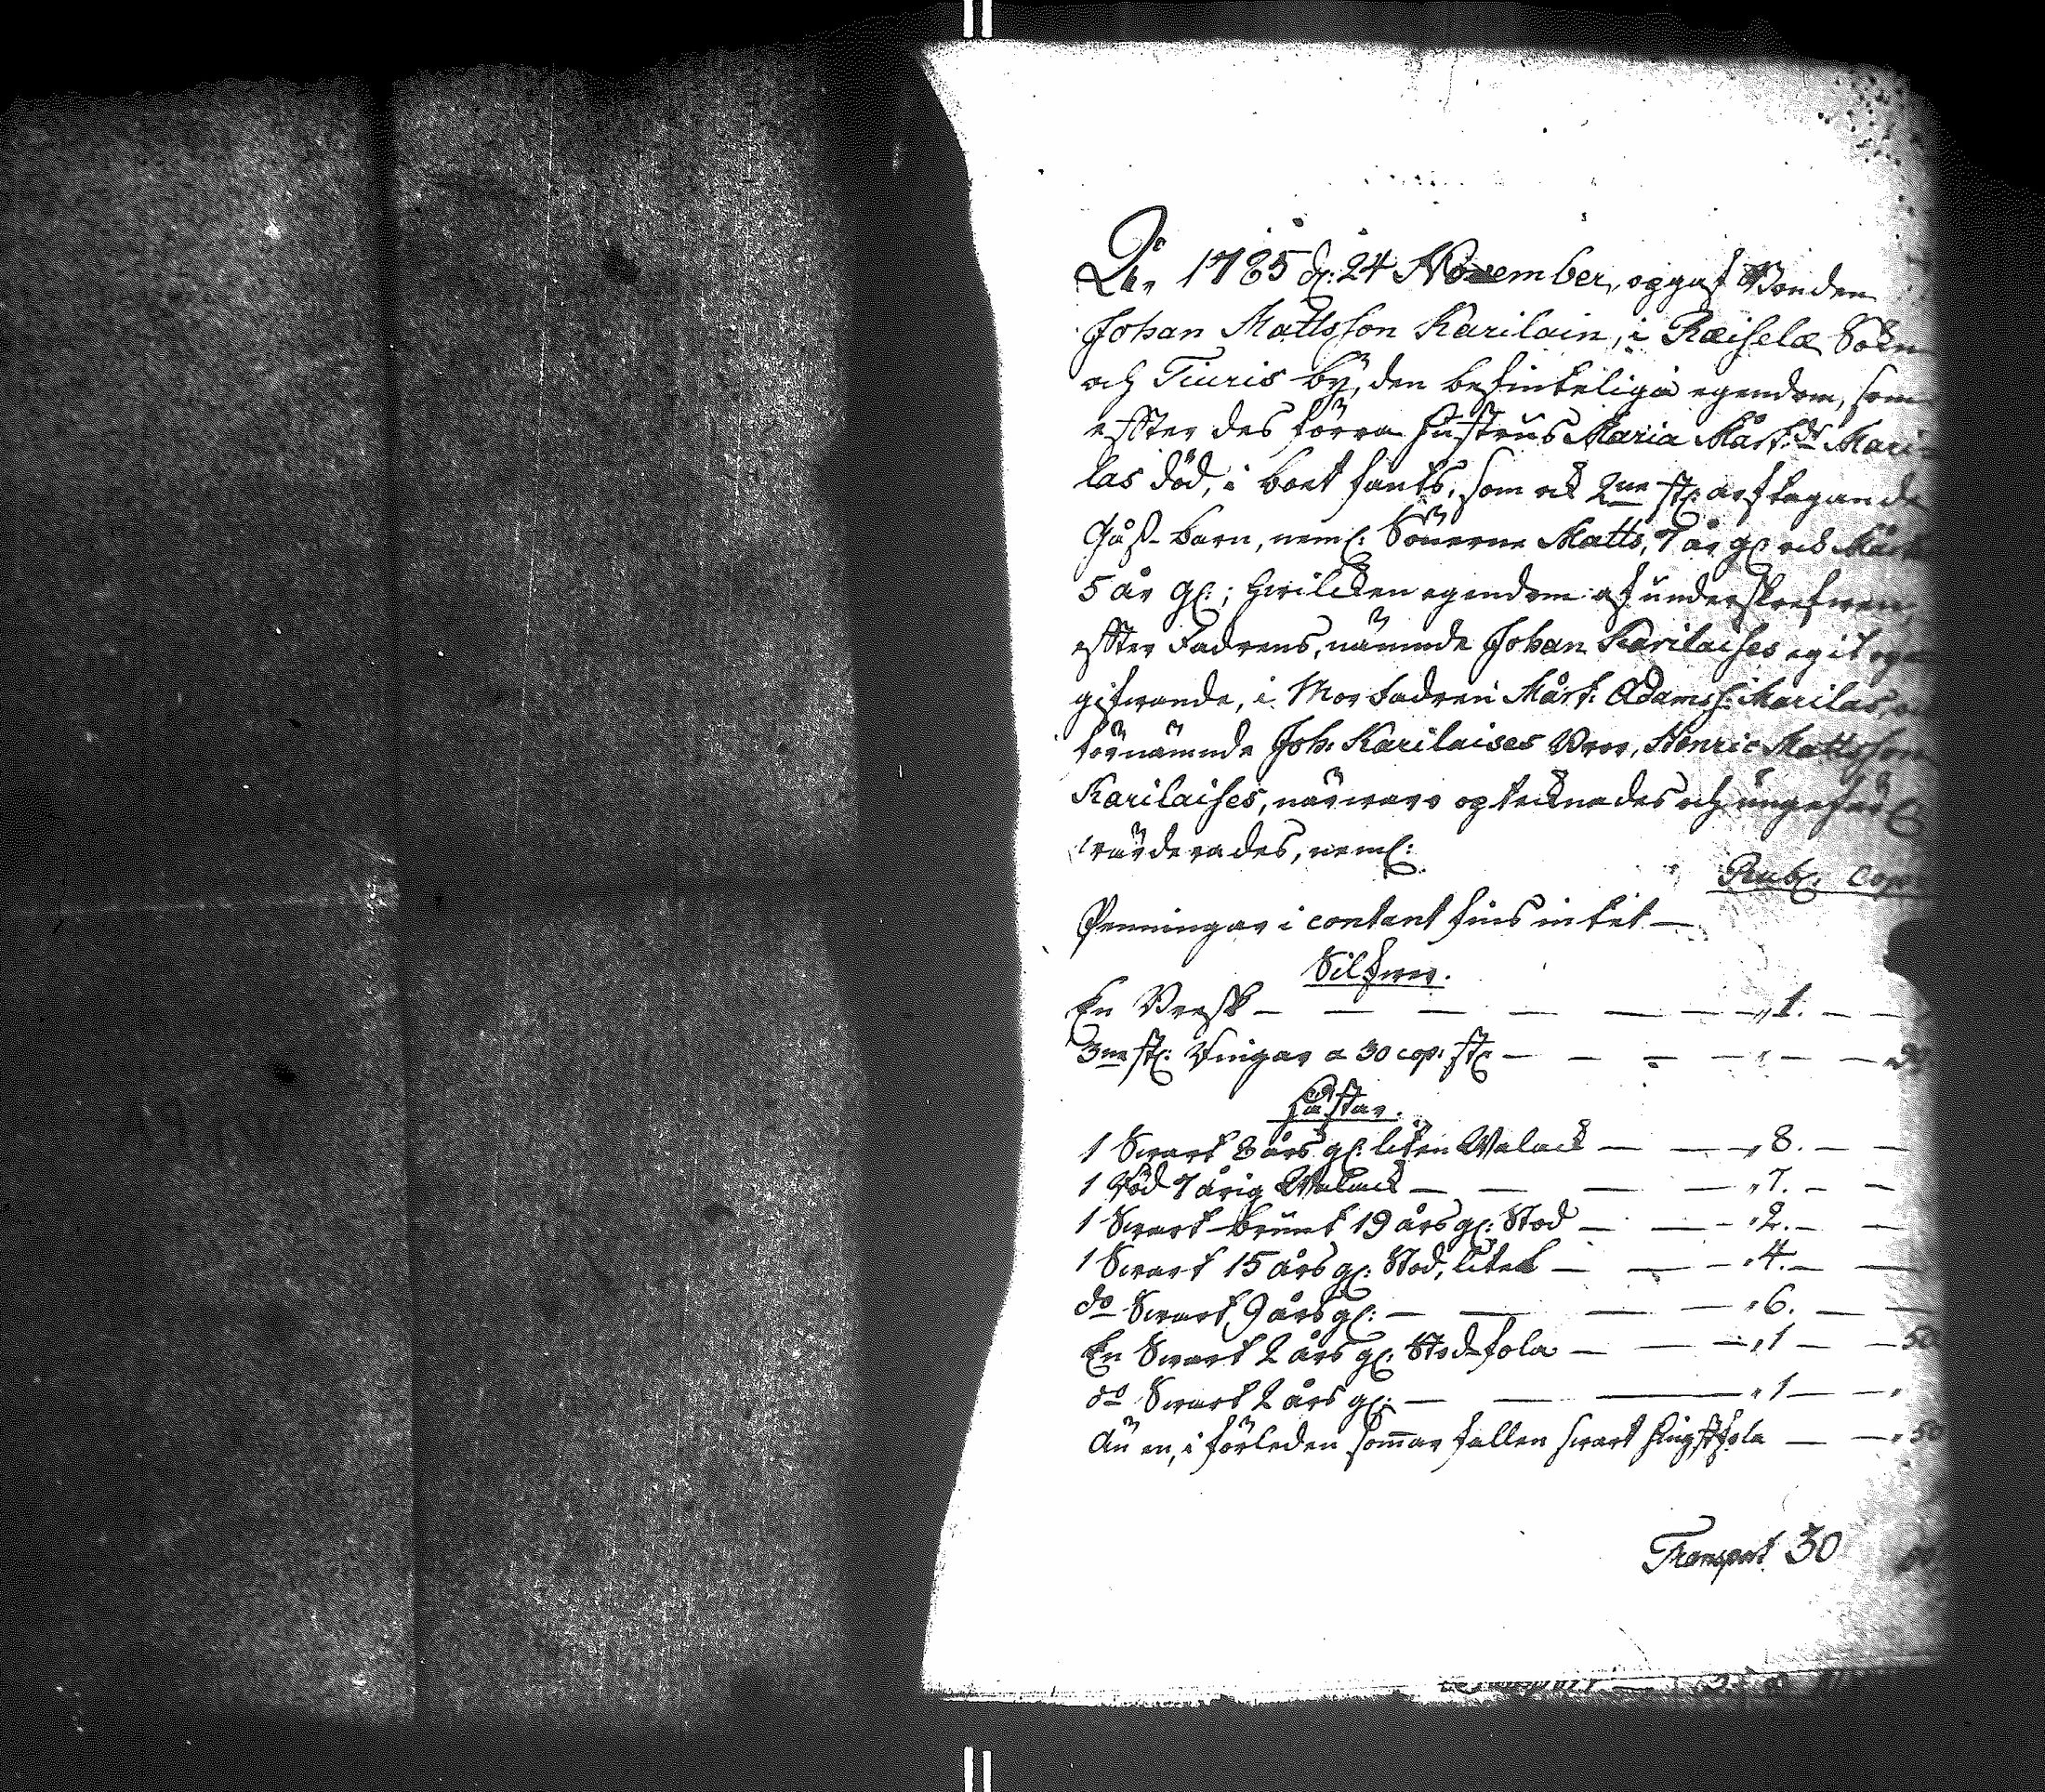 Åhr 1785 d: 24 November, opgaf Bonden
Johan Mattsson Karilain, i Räiselæ Sokn
och Tiuris by, den befinteliga egendom, som
effter des förra hustrus Maria Mårt: dr Mari-
las död, i boet fants, som ock 2ne st: arftagande
Gåsse barn, neml: Sönerne Matts, 7 år gl: och Mårt
5 år gl:; hvilcken egendom af underskrefwen,
effter Fadrens, nämnde Johan Karilaises egit op
gifwande, i Morfadren Mårt: Adamss: Marilas,
förnämnde Joh: Karilaises Bror, Henric Mattsson
Karilaises, närwaro optecknades och ungefärl
wärderades, neml:
Rubl: Cop
Penningar i contant fins intet —
Silfwer.
En Bresk — — — — — — " 1. — —
3ne st: Ringar a 30 cop: st: — — — — " — — 90
Hästar.
1 Swart 8 års gl: liten Walack — — " 8. — —
1 Röd 7 årig Walack — — — — " 7. — —
1 Swart-brunt 19 års gl: Stod — — — " 2. — —
1 Swart 15 års gl: Stod, litet — — — " 4. — —
do Swart 9 års gl: — — — — " 6. — —
En Swart 2 års gl: Stod-fola — — — " 1 — — 50
do Swart 2 års gl: — — — " 1 — — "
Än en, i förleden sommar fallen swart hingstfola — — " 50
Transport 30